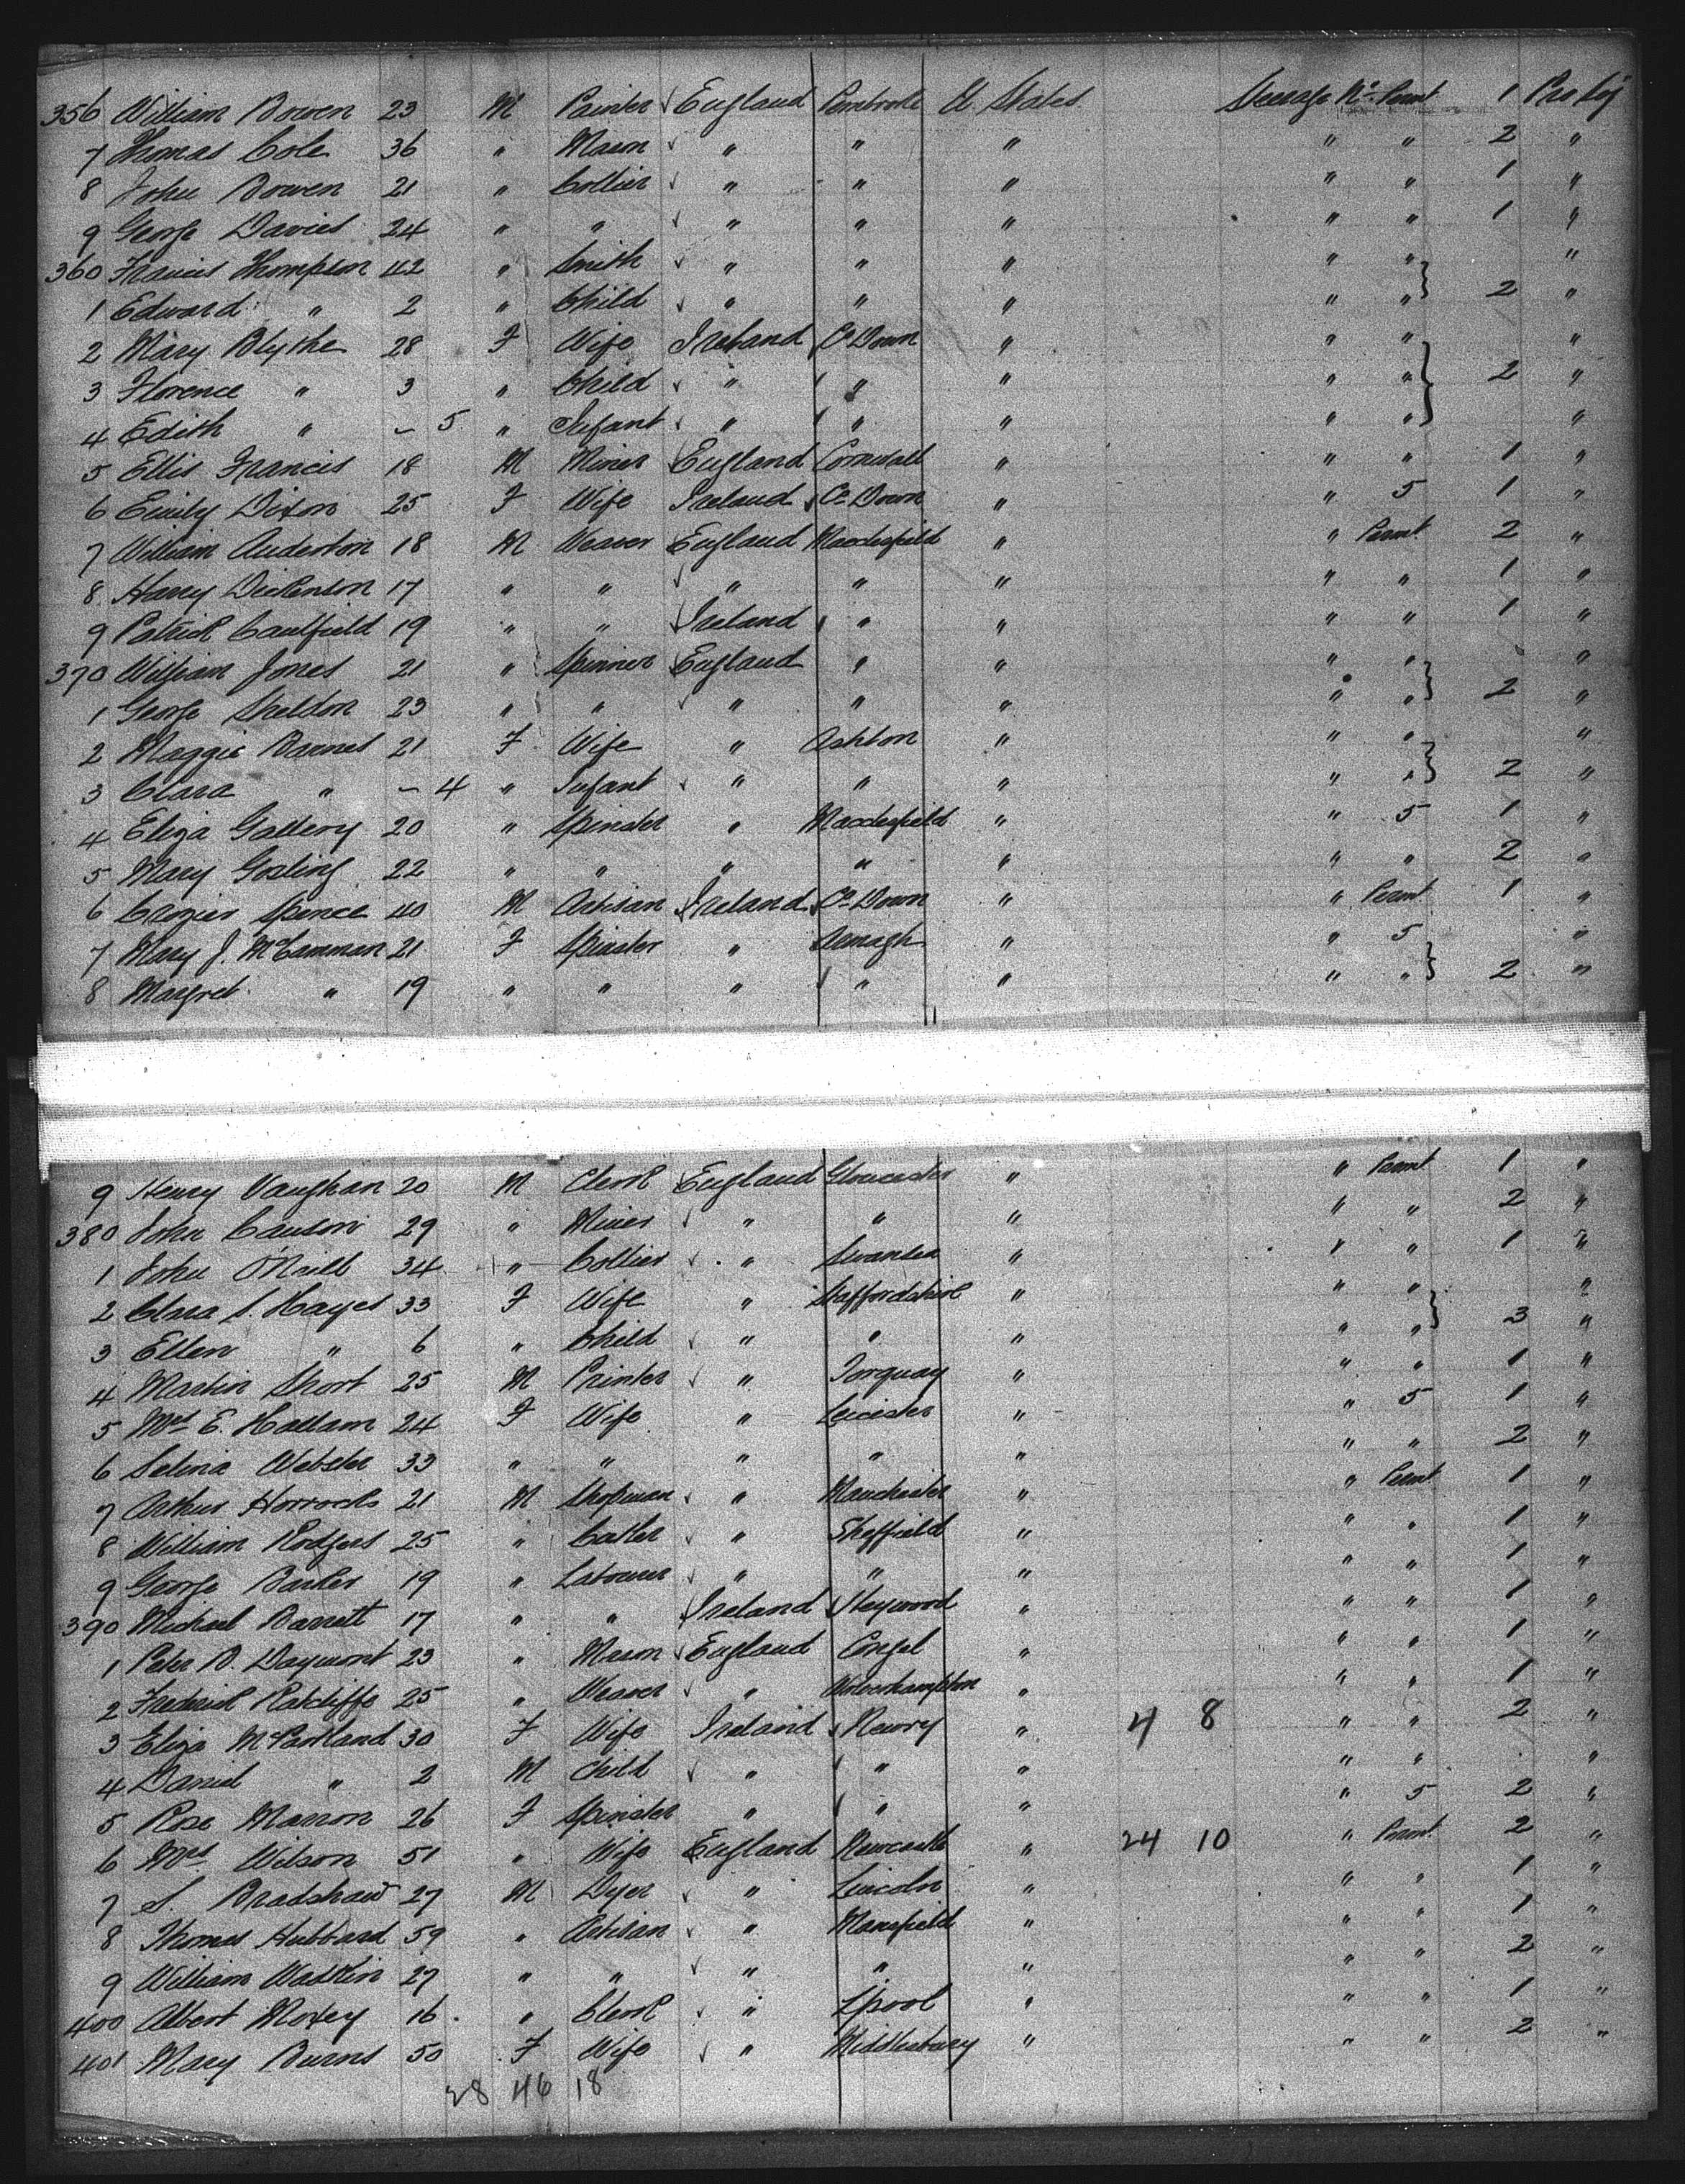 356 William Bowen 23 M Painter England Pembroke U. States Steerage No. Permt 1 Pro Lif
7 Thomas Cole 36 " Mason " " " " " 2 "
8 John Bowen 21 " Collier " " " " " 1 "
9 George Davies 24 " " " " " " " 1 "
360 Francis Thompson 42 " Smith " " " " " "
1 Edward " 2 " Child " " " " " 2 "
2 Mary Blythe 28 F Wife Ireland Co Down " " " "
3 Florence " 3 " Child " " " " " 2 "
4 Edith " – 5 " Infant " " " " " "
5 Ellis Francis 18 M Miner England Cornwall " " " 1 "
6 Emily Dixon 25 F Wife Ireland Co Down " " 5 1 "
7 William Anderton 18 M Weaver England Macclesfield " " Permt 2 "
8 Harry Dickenson 17 " " " " " " " 1 "
9 Patrick Caulfield 19 " " Ireland " " " 1 "
370 William Jones 21 " Spinner England " " " " "
1 George Sheldon 23 " " " " " " " 2 "
2 Maggie Barnes 21 F Wife " Ashton " " " "
3 Clara " – 4 " Infant " " " " " 2 "
4 Eliza Gallery 20 " Spinster " Macclesfield " " 5 1 "
5 Mary Gosling 22 " " " " " " " 2 "
6 Crozier Spence 40 M Artisan Ireland Co Down " " Permt 1 "
7 Mary J. McCamman 21 F Spinster " Armagh " " 5 "
8 Margret " 19 " " " " " " " 2 "
9 Henry Vaughan 20 M Clerk England Gloucester " " Permt 1 "
380 John Causon 29 " Miner " " " " " 2 "
1 John O'Neill 34 " Collier " Swansea " " " 1 "
2 Clara S. Hayes 33 F Wife " Staffordshire " " " "
3 Ellen " 6 " Child " " " " " 3 "
4 Martin Short 25 M Printer " Torquay " " " 1 "
5 Mrs E. Hallam 24 F Wife " Leicester " " 5 1 "
6 Selina Webster 33 " " " " " " " 2 "
7 Arthur Horrocks 21 M Shopman " Manchester " " Permt 1 "
8 William Rodgers 25 " Cutler " Sheffield " " " 1 "
9 George Barker 19 " Labourer " " " " " 1 "
390 Michael Barrett 17 " " Ireland Heywood " " " 1 "
1 Peter B. Dayment 23 " Mason England " " " 1 "
2 Frederick Ratcliffe 25 " Weaver " Wolverhampton " " " 1 "
3 Eliza McPartland 30 F Wife Ireland Newry " 4 8 " " 2 "
4 Daniel " 2 M Child " " " " " "
5 Rose Marron 26 F Spinster " " " " 5 2 "
6 Mrs Wilson 51 " Wife England Newcastle " 24 10 " Permt 2 "
7 S. Bradshaw 27 M Dyer " Lincoln " " " 1 "
8 Thomas Hubbard 59 " Artisan " Mansfield " " " 1 "
9 William Watkin 27 " " " " " " " 2 "
400 Albert Moxey 16 " Clerk " Lpool " " " 1 "
401 Mary Burns 50 F Wife " Middlesbury " " " 2 "
28 46 18